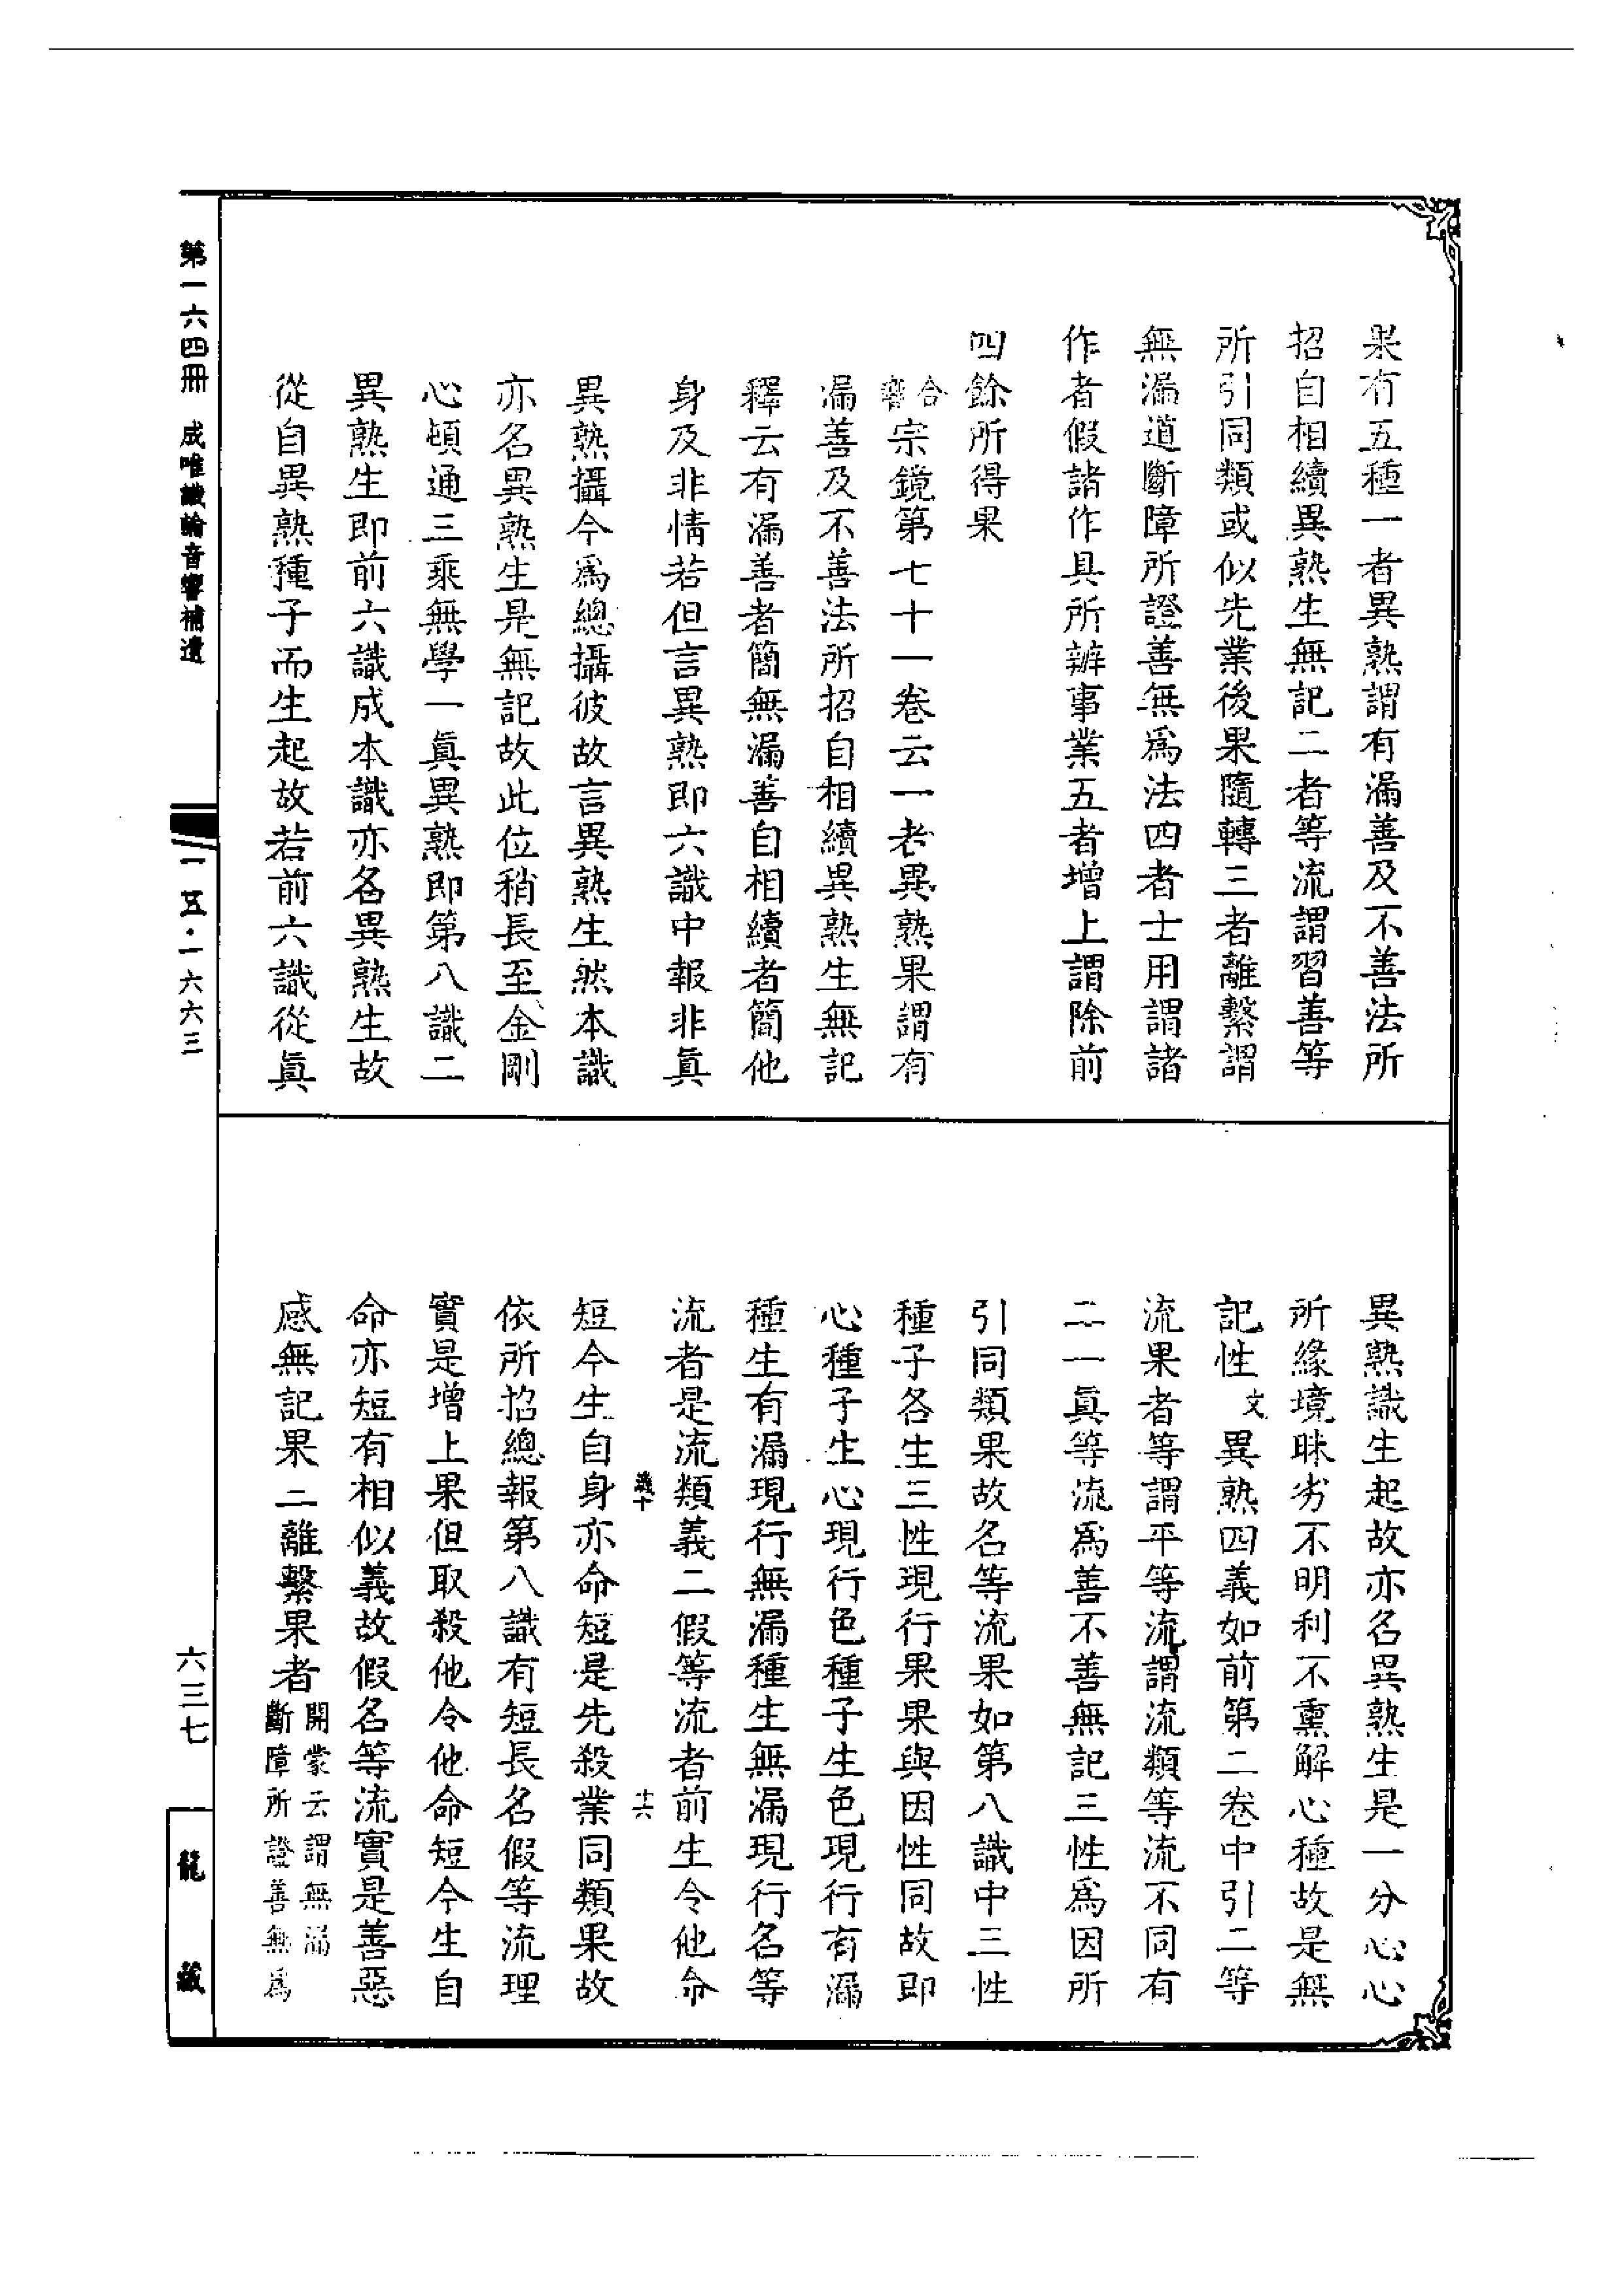 果有五種一者異熟謂有漏善及不善法所
招自相續異熟生無記二者等流謂習善等
所引同類或似先業後果隨轉三者離繫謂
無漏道斷障所證善無爲法四者士用謂諸
作者假諸作具所辦事業五者增上謂除前
四餘所得果
合響宗鏡第七十一卷云一者異熟果謂有
漏善及不善法所招自相續異熟生無記
釋云有漏善者簡無漏善自相續者簡他
身及非情若但言異熟即六識中報非眞
異熟攝今爲總攝彼故言異熟生然本識
亦名異熟生是無記故此位稍長至金剛
心頓通三乘無學一眞異熟即第八識二
異熟生即前六識成本識亦名異熟生故
從自異熟種子而生起故若前六識從眞
異熟識生起故亦名異熟生是一分心心
所緣境昧劣不明利不熏解心種故是無
記性文異熟四義如前第二卷中引二等
流果者等謂平等流謂流類等流不同有
二一眞等流爲善不善無記三性爲因所
引同類果故名等流果如第八識中三性
種子各生三性現行果果與因性同故即
心種子生心現行色種子生色現行有漏
種生有漏現行無漏種生無漏現行名等
流者是流類義二假等流者前生令他命
義十
十六
短今生自身亦命短是先殺業同類果故
依所招總報第八識有短長名假等流理
實是增上果但取殺他令他命短今生自
命亦短有相似義故假名等流實是善惡
感無記果二離繫果者開蒙云謂無漏
斷障所證善無爲
第一六四冊 成唯識論音響補遺
一五·一六六三
六三七
龍藏